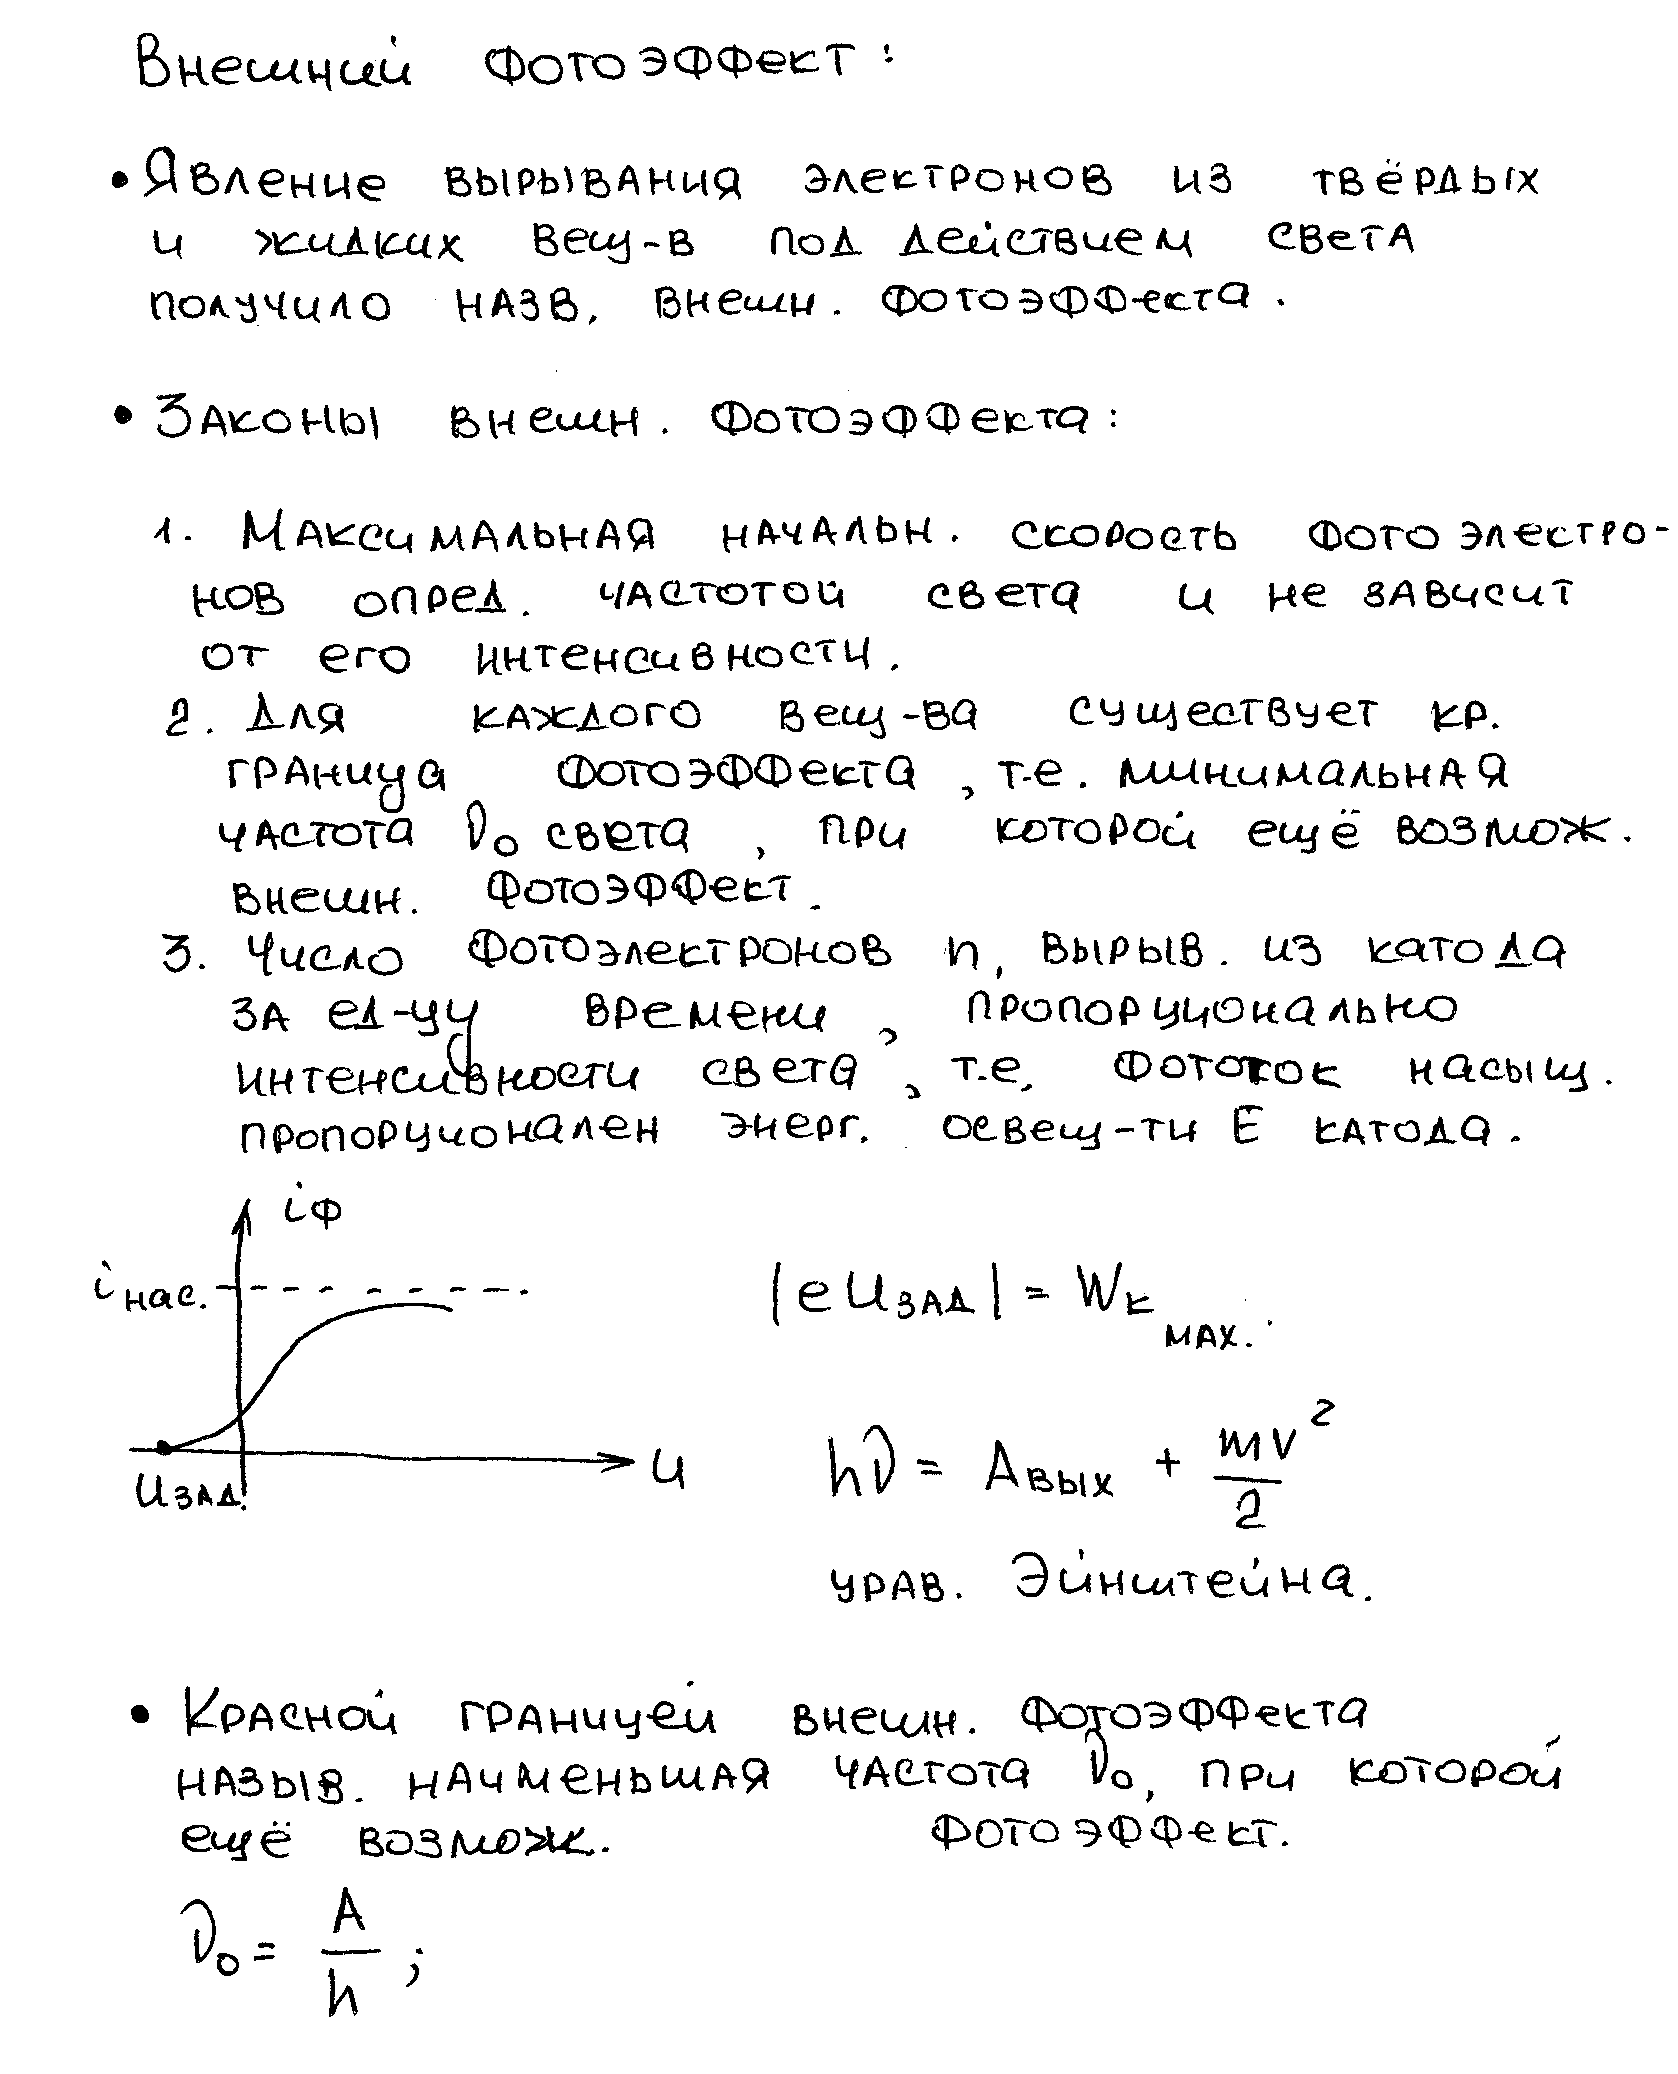 Внешний фотоэффект:
• Явление вырывания электронов из твёрдых
и жидких вещ-в под действием света
получило назв. внешн. фотоэффекта.
• Законы внешн. фотоэффекта:
1. Максимальная начальн. скорость фотоэлектро-
нов опред. частотой света и не зависит
от его интенсивности.
2. Для каждого вещ-ва существует кр.
граница фотоэффекта, т.е. минимальная
частота ν₀ света, при которой ещё возмож.
внешн. фотоэффект.
3. Число фотоэлектронов n, вырыв. из катода
за ед-цу времени, пропорционально
интенсивности света, т.е. фототок насыщ.
пропорционален энерг. освещ-ти E катода.
iф
iнас.
|eUзад| = Wк мах.
U
Uзад.
hν = Aвых + mv²/2
урав. Эйнштейна.
• Красной границей внешн. фотоэффекта
назыв. наименьшая частота ν₀, при которой
ещё возмож. фотоэффект.
ν₀ = A/h;